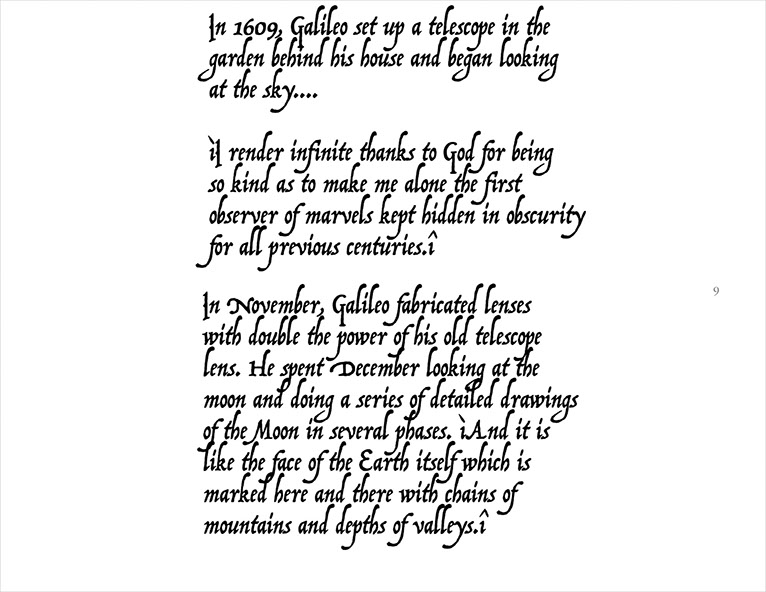 In 1609, Galileo set up a telescope in the
garden behind his house and began looking
at the sky....
ìI render infinite thanks to God for being
so kind as to make me alone the first
observer of marvels kept hidden in obscurity
for all previous centuries.î
In November, Galileo fabricated lenses
with double the power of his old telescope
lens. He spent December looking at the
moon and doing a series of detailed drawings
of the Moon in several phases. ìAnd it is
like the face of the Earth itself which is
marked here and there with chains of
mountains and depths of valleys.î
9